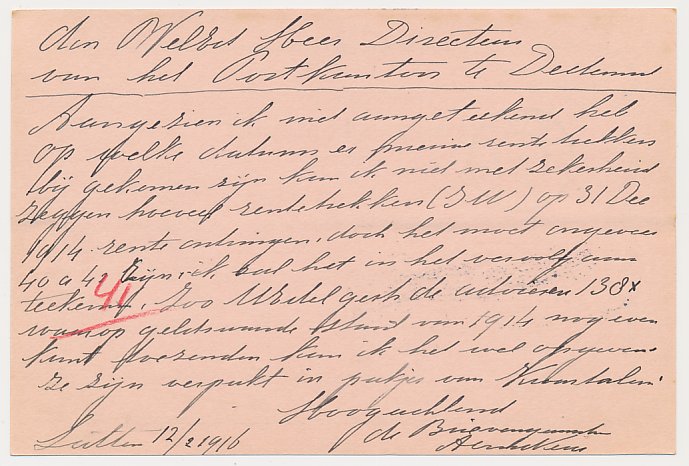 den WelEd Heer Directeur
van het Postkantoor te Dedemsv
Aangezien ik niet aangeteekend heb
op welke datums er nieuwe rentetrekkers
bij gekomen zijn kan ik niet met zekerheid
zeggen hoeveel rentetrekkers (IW) op 31 Dec
1914 rente ontvingen, doch het moet ongeveer
40 a 42 zijn: ik zal het in het vervolg aan
teekenen. Zoo UEdel gestr de adviezen 138x
41
waarop geldswaarde stand van 1914 nog even
kunt toezenden kan ik het wel opgeven
ze zijn verpakt in pakjes van kwartalen.
Hoogachtend
Lutten 12/2 1916 de Brievengaarder